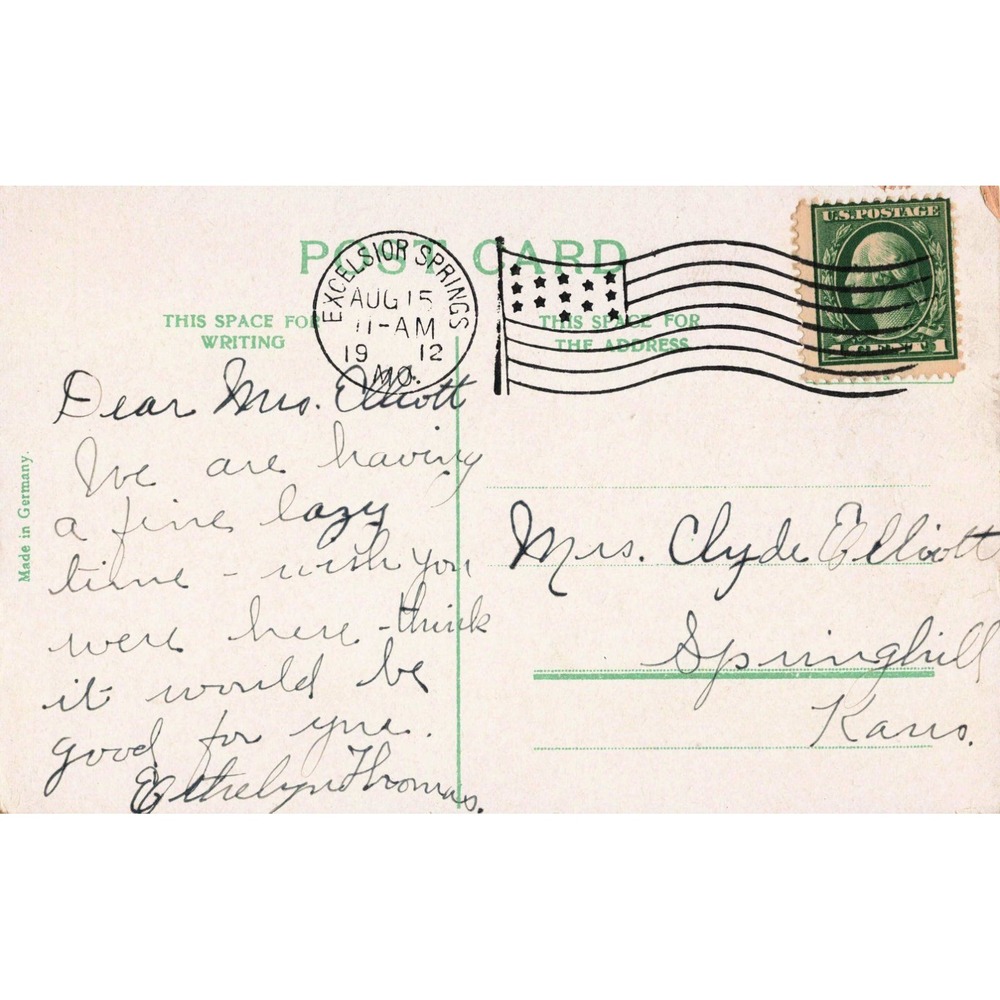 POST CARD
EXCELSIOR SPRINGS
AUG 15
11-AM
19 12
MO.
U.S. POSTAGE
1 CENT 1
THIS SPACE FOR
WRITING
THIS SPACE FOR
THE ADDRESS
Made in Germany.
Dear Mrs. Elliott
We are having
a fine lazy
time - wish you
were here - think
it would be
good for you.
Ethelyn Thomas.
Mrs. Clyde Elliott
Springhill
Kans.